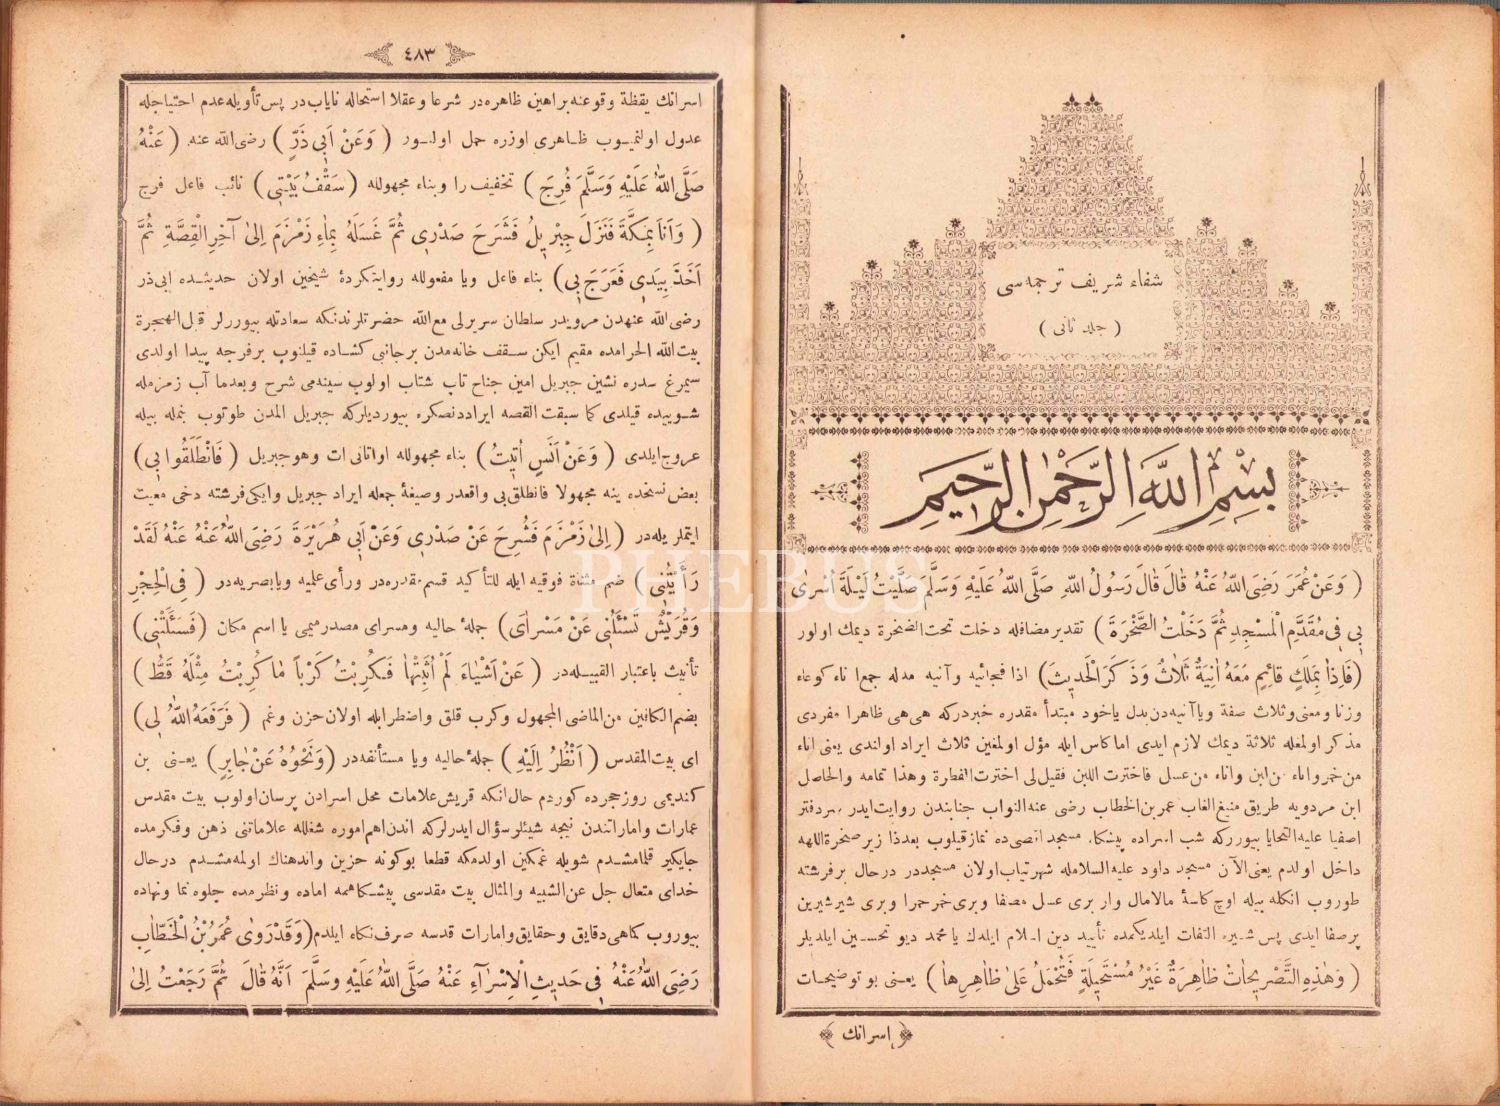 شفاء شريف ترجمه‌سى
( جلد ثانى )
بِسْمِ اللهِ الرَّحْمٰنِ الرَّحِيمِ
( وَعَنْ عُمَرَ رَضِىَ اللهُ عَنْهُ قَالَ قَالَ رَسُولُ اللهِ صَلَّى اللهُ عَلَيْهِ وَسَلَّمَ صَلَّيْتُ لَيْلَةَ اُسْرِىَ
بِى فِى مُقَدَّمِ الْمَسْجِدِ ثُمَّ دَخَلْتُ الصَّخْرَةَ ) تقدير مضافله دخلت تحت الصخرة ديمك اولور
( فَاِذَا بِمَلَكٍ قَائِمٍ مَعَهُ اٰنِيَةٌ ثَلَاثٌ وَذَكَرَ الْحَدِيثَ ) اذا فجائيه وآنيه مدله جمع اناء كوعاء
وزنا ومعنى وثلاث صفة ويا آنيه‌دن بدل ياخود مبتدأ مقدره خبردركه هى هى ظاهرا مفردى
مذكر اولمغله ثلاثة ديمك لازم ايدى اما كاس ايله مؤل اولمغين ثلاث ايراد اولندى يعنى اناء
من خمر واناء من لبن واناء من عسل فاخترت اللبن فقيل لى اخترت الفطرة وهذا تمامه والحاصل
ابن مردويه طريق منبع الغاب عمر بن الخطاب رضى عنه النواب جنابندن روايت ايدر سردفتر
اصفيا عليه التحايا بيوررلركه شب اسراده پيشكاه مسجد اقصى‌ده نماز قيلوب بعدذا زير صخرة اللهه
داخل اولدم يعنى الآن مسجد داود عليه السلامله شهرتياب اولان مسجددر در حال بر فرشته
طوروب انكله بيله اوچ كاسهٔ مالامال وار برى عسل مصفا وبرى خمر حمرا وبرى شير شيرين
پرصفا ايدى پس شيره التفات ايلديكمده تأييد دين اسلام ايلدك يا محمد ديو تحسين ايلديلر
( وَهٰذِهِ التَّصْرِيحَاتُ ظَاهِرَةٌ غَيْرُ مُسْتَحِيلَةٍ فَتُحْمَلُ عَلٰى ظَاهِرِهَا ) يعنى بو توضيحات
اسرانك
٤٨٣
اسرانك يقظة وقوعنه براهين ظاهره‌در شرعا وعقلا استحاله ناياب‌در پس تأويله عدم احتياجله
عدول اولنميوب ظاهرى اوزره حمل اولنور ( وَعَنْ اَبِى ذَرٍّ ) رضى الله عنه ( عَنْهُ
صَلَّى اللهُ عَلَيْهِ وَسَلَّمَ فُرِجَ ) تخفيف را وبناء مجهولله ( سَقْفُ بَيْتِى ) نائب فاعل فرج
( وَاَنَا بِمَكَّةَ فَنَزَلَ جِبْرِيلُ فَشَرَحَ صَدْرِى ثُمَّ غَسَلَهُ بِمَاءِ زَمْزَمَ اِلٰى آخِرِ الْقِصَّةِ ثُمَّ
اَخَذَ بِيَدِى فَعَرَجَ بِى ) بناء فاعل ويا مفعولله روايتكردهٔ شيخين اولان حديثده ابى ذر
رضى الله عنهدن مرويدر سلطان سريرلى مع الله حضرتلرندنكه سعادتله بيوررلر قبل الهجرة
بيت الله الحرامده مقيم ايكن سقف خانه‌مدن بر جانبى كشاده قيلنوب بر فرجه پيدا اولدى
سيمرغ سدره نشين جبريل امين جناح تاب شتاب اولوب سينه‌مى شرح وبعدما آب زمزمله
شوييده قيلدى كما سبقت القصه ايراددنصكره بيورديلركه جبريل المدن طوتوب بنمله بيله
عروج ايلدى ( وَعَنْ اَنَسٍ اُتِيتُ ) بناء مجهولله اى اتانى آت وهو جبريل ( فَانْطَلَقُوا بِى )
بعض نسخده ينه مجهولا فانطلق بى واقعدر وصيغهٔ جمعله ايراد جبريل وايكى فرشته دخى معيت
ايتملريله‌در ( اِلٰى زَمْزَمَ فَشُرِحَ عَنْ صَدْرِى وَعَنْ اَبِى هُرَيْرَةَ رَضِىَ اللهُ عَنْهُ عَنْهُ لَقَدْ
رَأَيْتُنِى ) ضم مثناة فوقيه ايله للتأكيد قسم مقدره‌در ورأى علميه ويا بصريه‌در ( فِى الْحِجْرِ
وَقُرَيْشٌ تَسْئَلُنِى عَنْ مَسْرَاىَ ) جملهٔ حاليه ومسراى مصدر ميمى يا اسم مكان ( فَسَئَلَتْنِى )
تأنيث باعتبار القبيله‌در ( عَنْ اَشْيَاءَ لَمْ اُثْبِتْهَا فَكُرِبْتُ كَرْباً مَا كُرِبْتُ مِثْلَهُ قَطُّ )
بضم الكافين من الماضى المجهول وكرب قلق واضطرابله اولان حزن وغم ( فَرَفَعَهُ اللهُ لِى )
اى بيت المقدس ( اَنْظُرُ اِلَيْهِ ) جملهٔ حاليه ويا مستأنفه‌در ( وَنَحْوُهُ عَنْ جَابِرٍ ) يعنى بن
كنديمى روز حجرده كوردم حال آنكه قريش علامات محل اسرادن پرسان اولوب بيت مقدس
عمارات واماراتندن نيجه شيئلر سؤال ايدرلركه اندن اهم اموره شغلله علاماتنى ذهن وفكرمده
جايكير قلمامشدم شويله غمكين اولدمكه قطعا بوكونه حزين واندهناك اولمه‌مشدم در حال
خداى متعال جل عن الشبيه والمثال بيت مقدسى پيشكاهمه اماده ونظرمده جلوه نما ونهاده
بيوروب كماهى دقايق وحقايق وامارات قدسه صرف نكاه ايلدم ( وَقَدْ رَوٰى عُمَرُ بْنُ الْخَطَّابِ
رَضِىَ اللهُ عَنْهُ فِى حَدِيثِ الْاِسْرَآءِ عَنْهُ صَلَّى اللهُ عَلَيْهِ وَسَلَّمَ اَنَّهُ قَالَ ثُمَّ رَجَعْتُ اِلٰى
PHEBUS